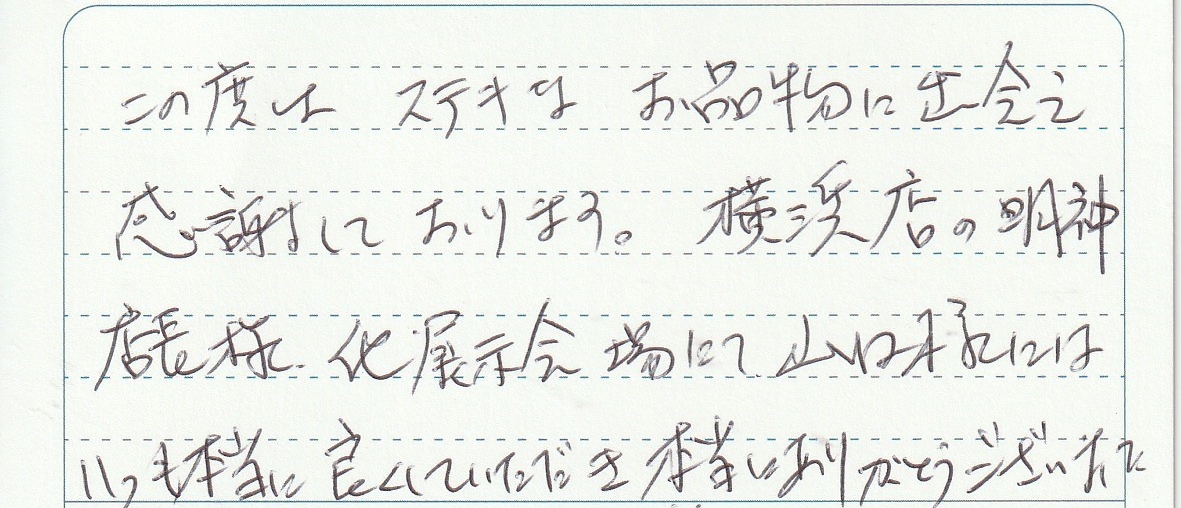 この度は ステキな お品物に出会え
感謝して おります。 横浜店の明神
店長様、他展示会場にて 山口様には
いつも本当に良くしていただき本当にありがとうございました